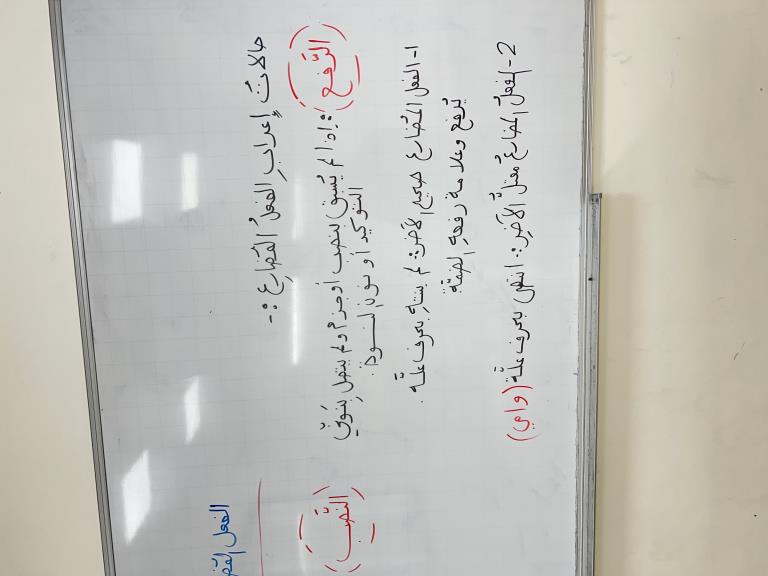 حالات إعراب الفعل المضارع :-
(الرّفع) : إذا لم يُسبق بنصب أو جزم ولم يتصل بنوني
التوكيد أو نون النسوة.
1- الفعل المُضارع صحيح الآخر: لم ينتهِ بحرف علّة.
يُرفع وعلامة رفعهِ الضمّة
2- الفعل المضارع مُعتلّ الآخر: انتهى بحرف علّة (و ا ي)
(النّصب)
الفعل المُضـ